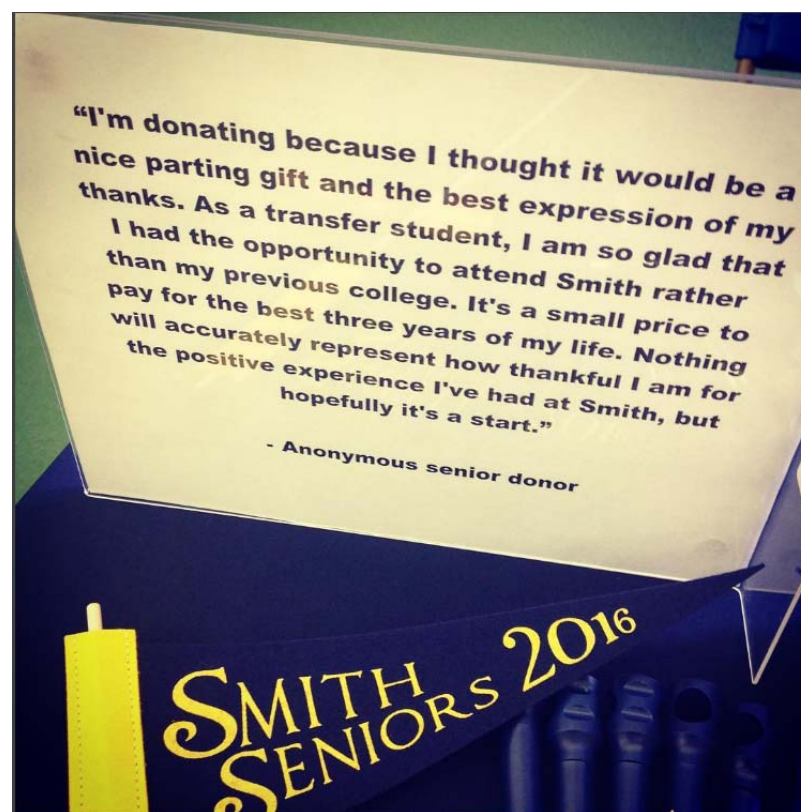 “I'm donating because I thought it would be a
nice parting gift and the best expression of my
thanks. As a transfer student, I am so glad that
I had the opportunity to attend Smith rather
than my previous college. It's a small price to
pay for the best three years of my life. Nothing
will accurately represent how thankful I am for
the positive experience I've had at Smith, but
hopefully it's a start.”
- Anonymous senior donor
SMITH
SENIORS 2016